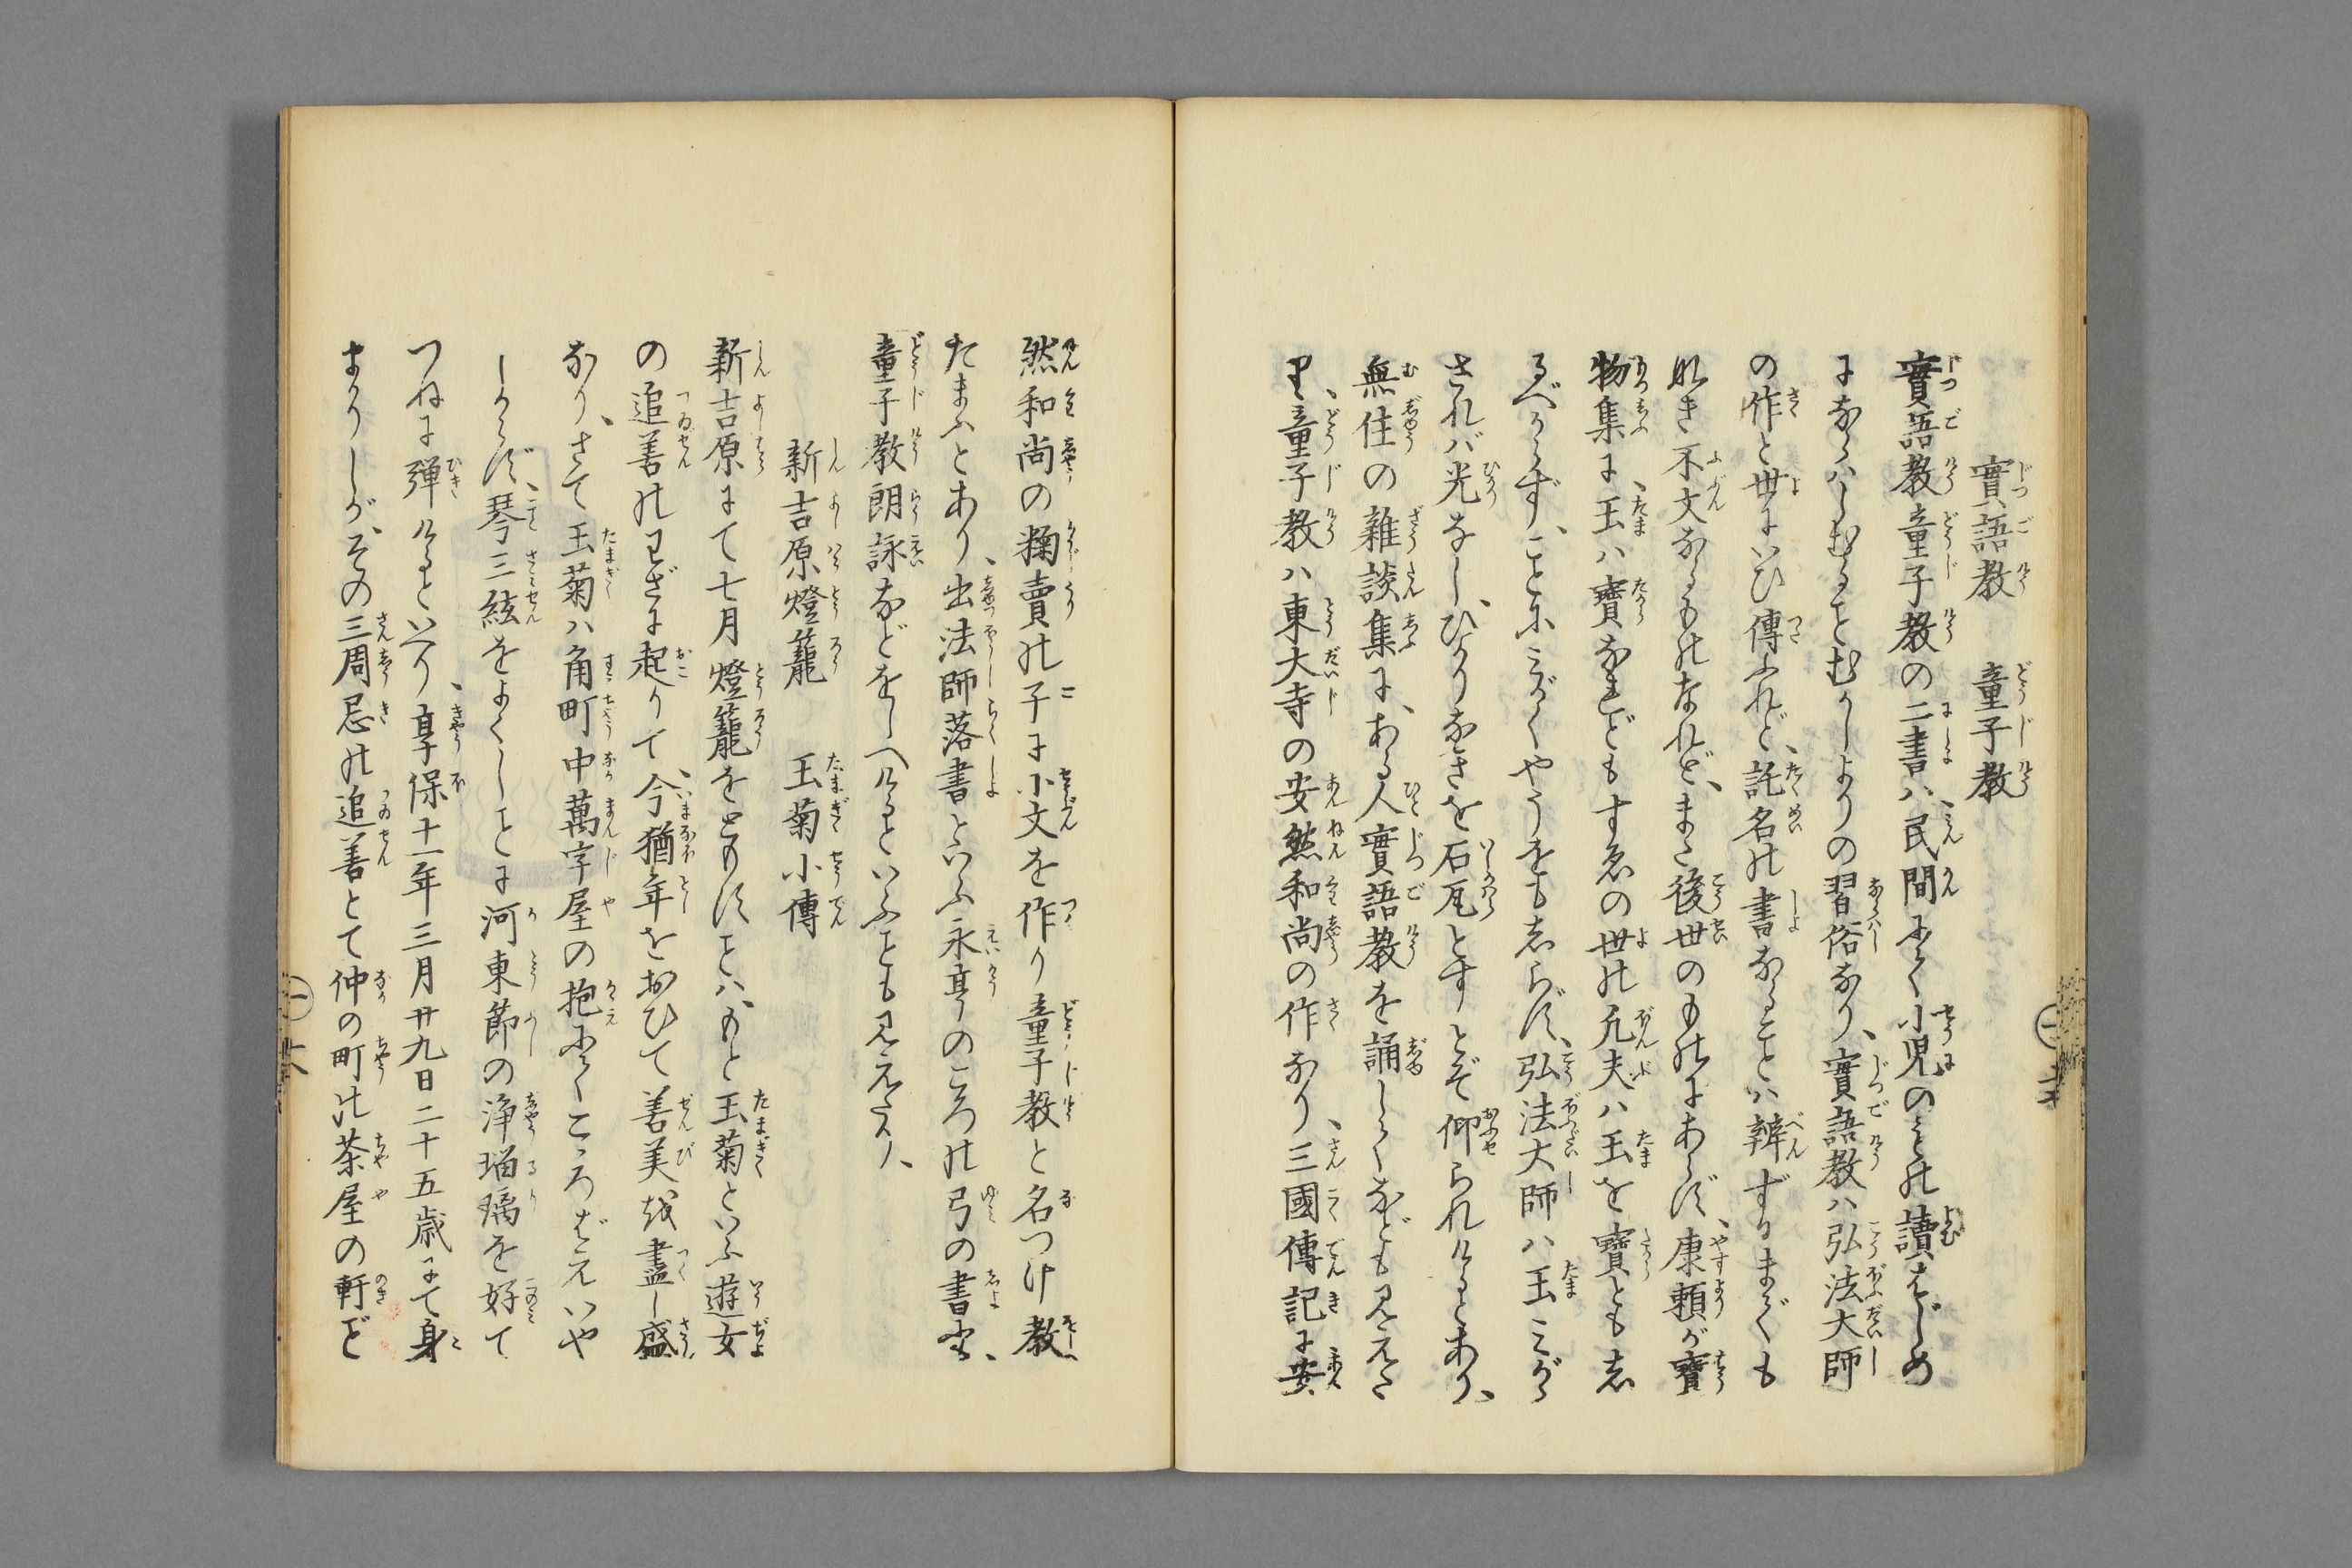 實語教　童子教
實語教童子教の二書ハ、民間にて小児のミの讀はじめ
にならハしむることむかしよりの習俗なり、實語教ハ弘法大師
の作と世にいひ傳ふれど、託名の書なることハ辨ずるまでも
なき不文なるものなれど、また後世のものにあらず、康頼が寶
物集に、玉ハ寶なれどもすゑの世の凡夫ハ玉を寶とも志
るべからず、ことにミがくやうをも志らず、弘法大師ハ玉ミがゝ
されバ光なし、ひかりなきを石瓦とすとぞ仰られけるとあり、
無住の雑談集に、ある人實語教を誦しらくなども見えた
り、童子教ハ東大寺の安然和尚の作なり、三國傳記に安
然和尚の麹賣の子に小文を作り童子教と名つけ教
たまふとあり、出法師落書といふ永享のころの弓の書に、
童子教朗詠などをしへけるといふことも見えたり、
新吉原燈籠　玉菊小傳
新吉原にて七月燈籠をともすことハ、もと玉菊といふ遊女
の追善のわざに起りて、今猶年をおひて善美を盡し盛
なり、さて玉菊ハ角町中萬字屋の抱にてこゝろばえいや
しからず、琴三絃をよくしことに河東節の浄瑠璃を好て
つねに弾けるといへり、享保十一年三月廿九日二十五歳にて身
まかりしが、その三周忌の追善とて仲の町の茶屋の軒ど